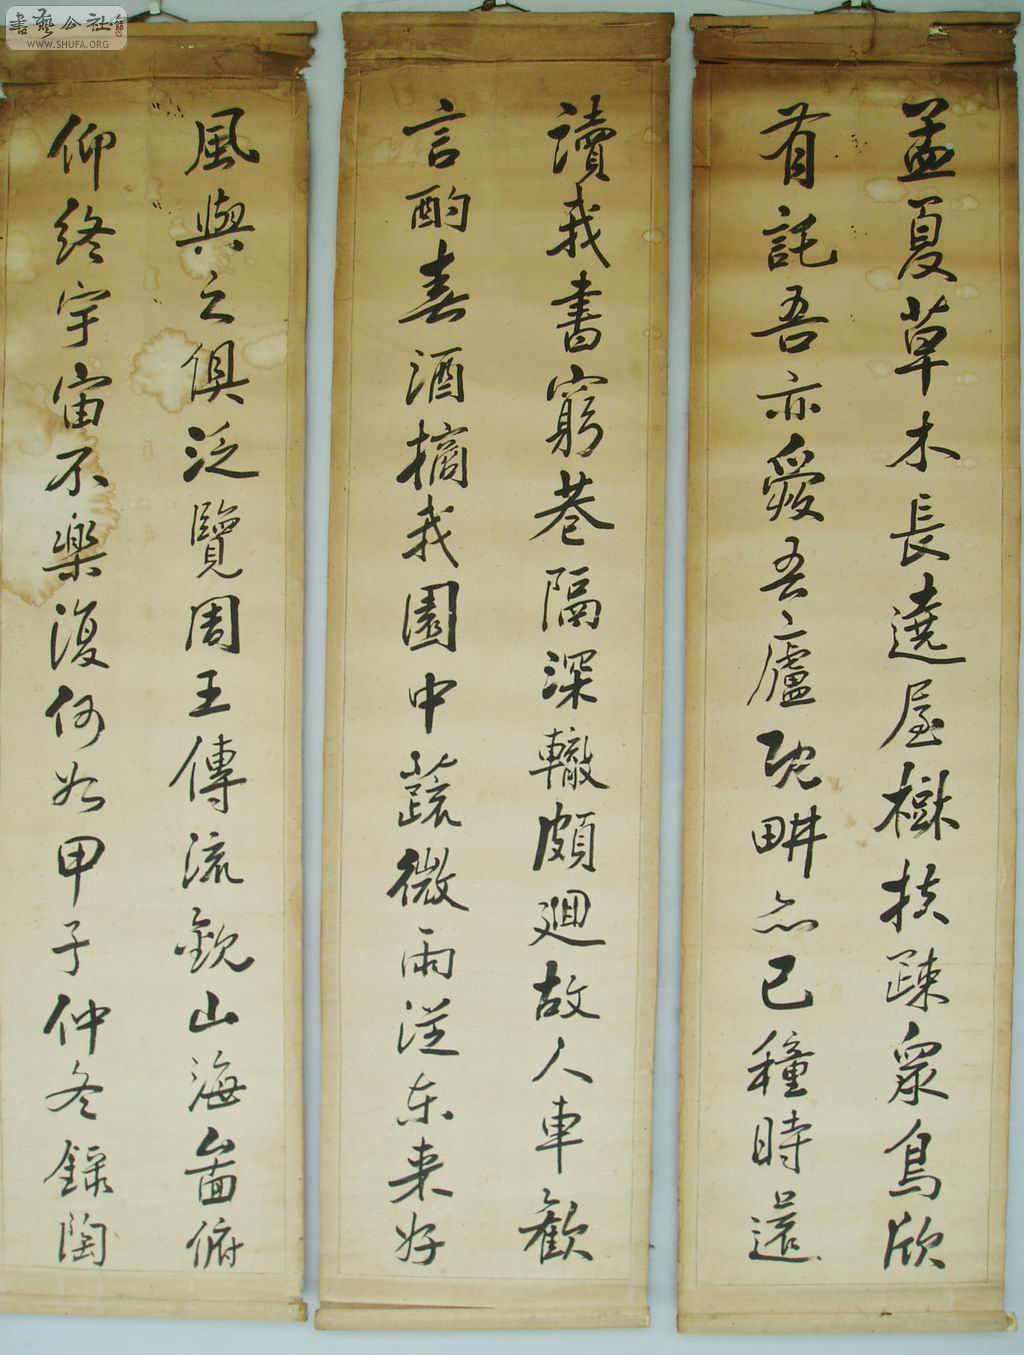 書藝公社
WWW.SHUFA.ORG
孟夏草木長遶屋樹扶踈眾鳥欣
有託吾亦愛吾廬既畊亦已種時還
讀我書窮巷隔深轍頗廻故人車歡
言酌春酒摘我園中蔬微雨從東來好
風與之俱泛覽周王傳流觀山海圖俯
仰終宇宙不樂復何如甲子仲冬錄陶